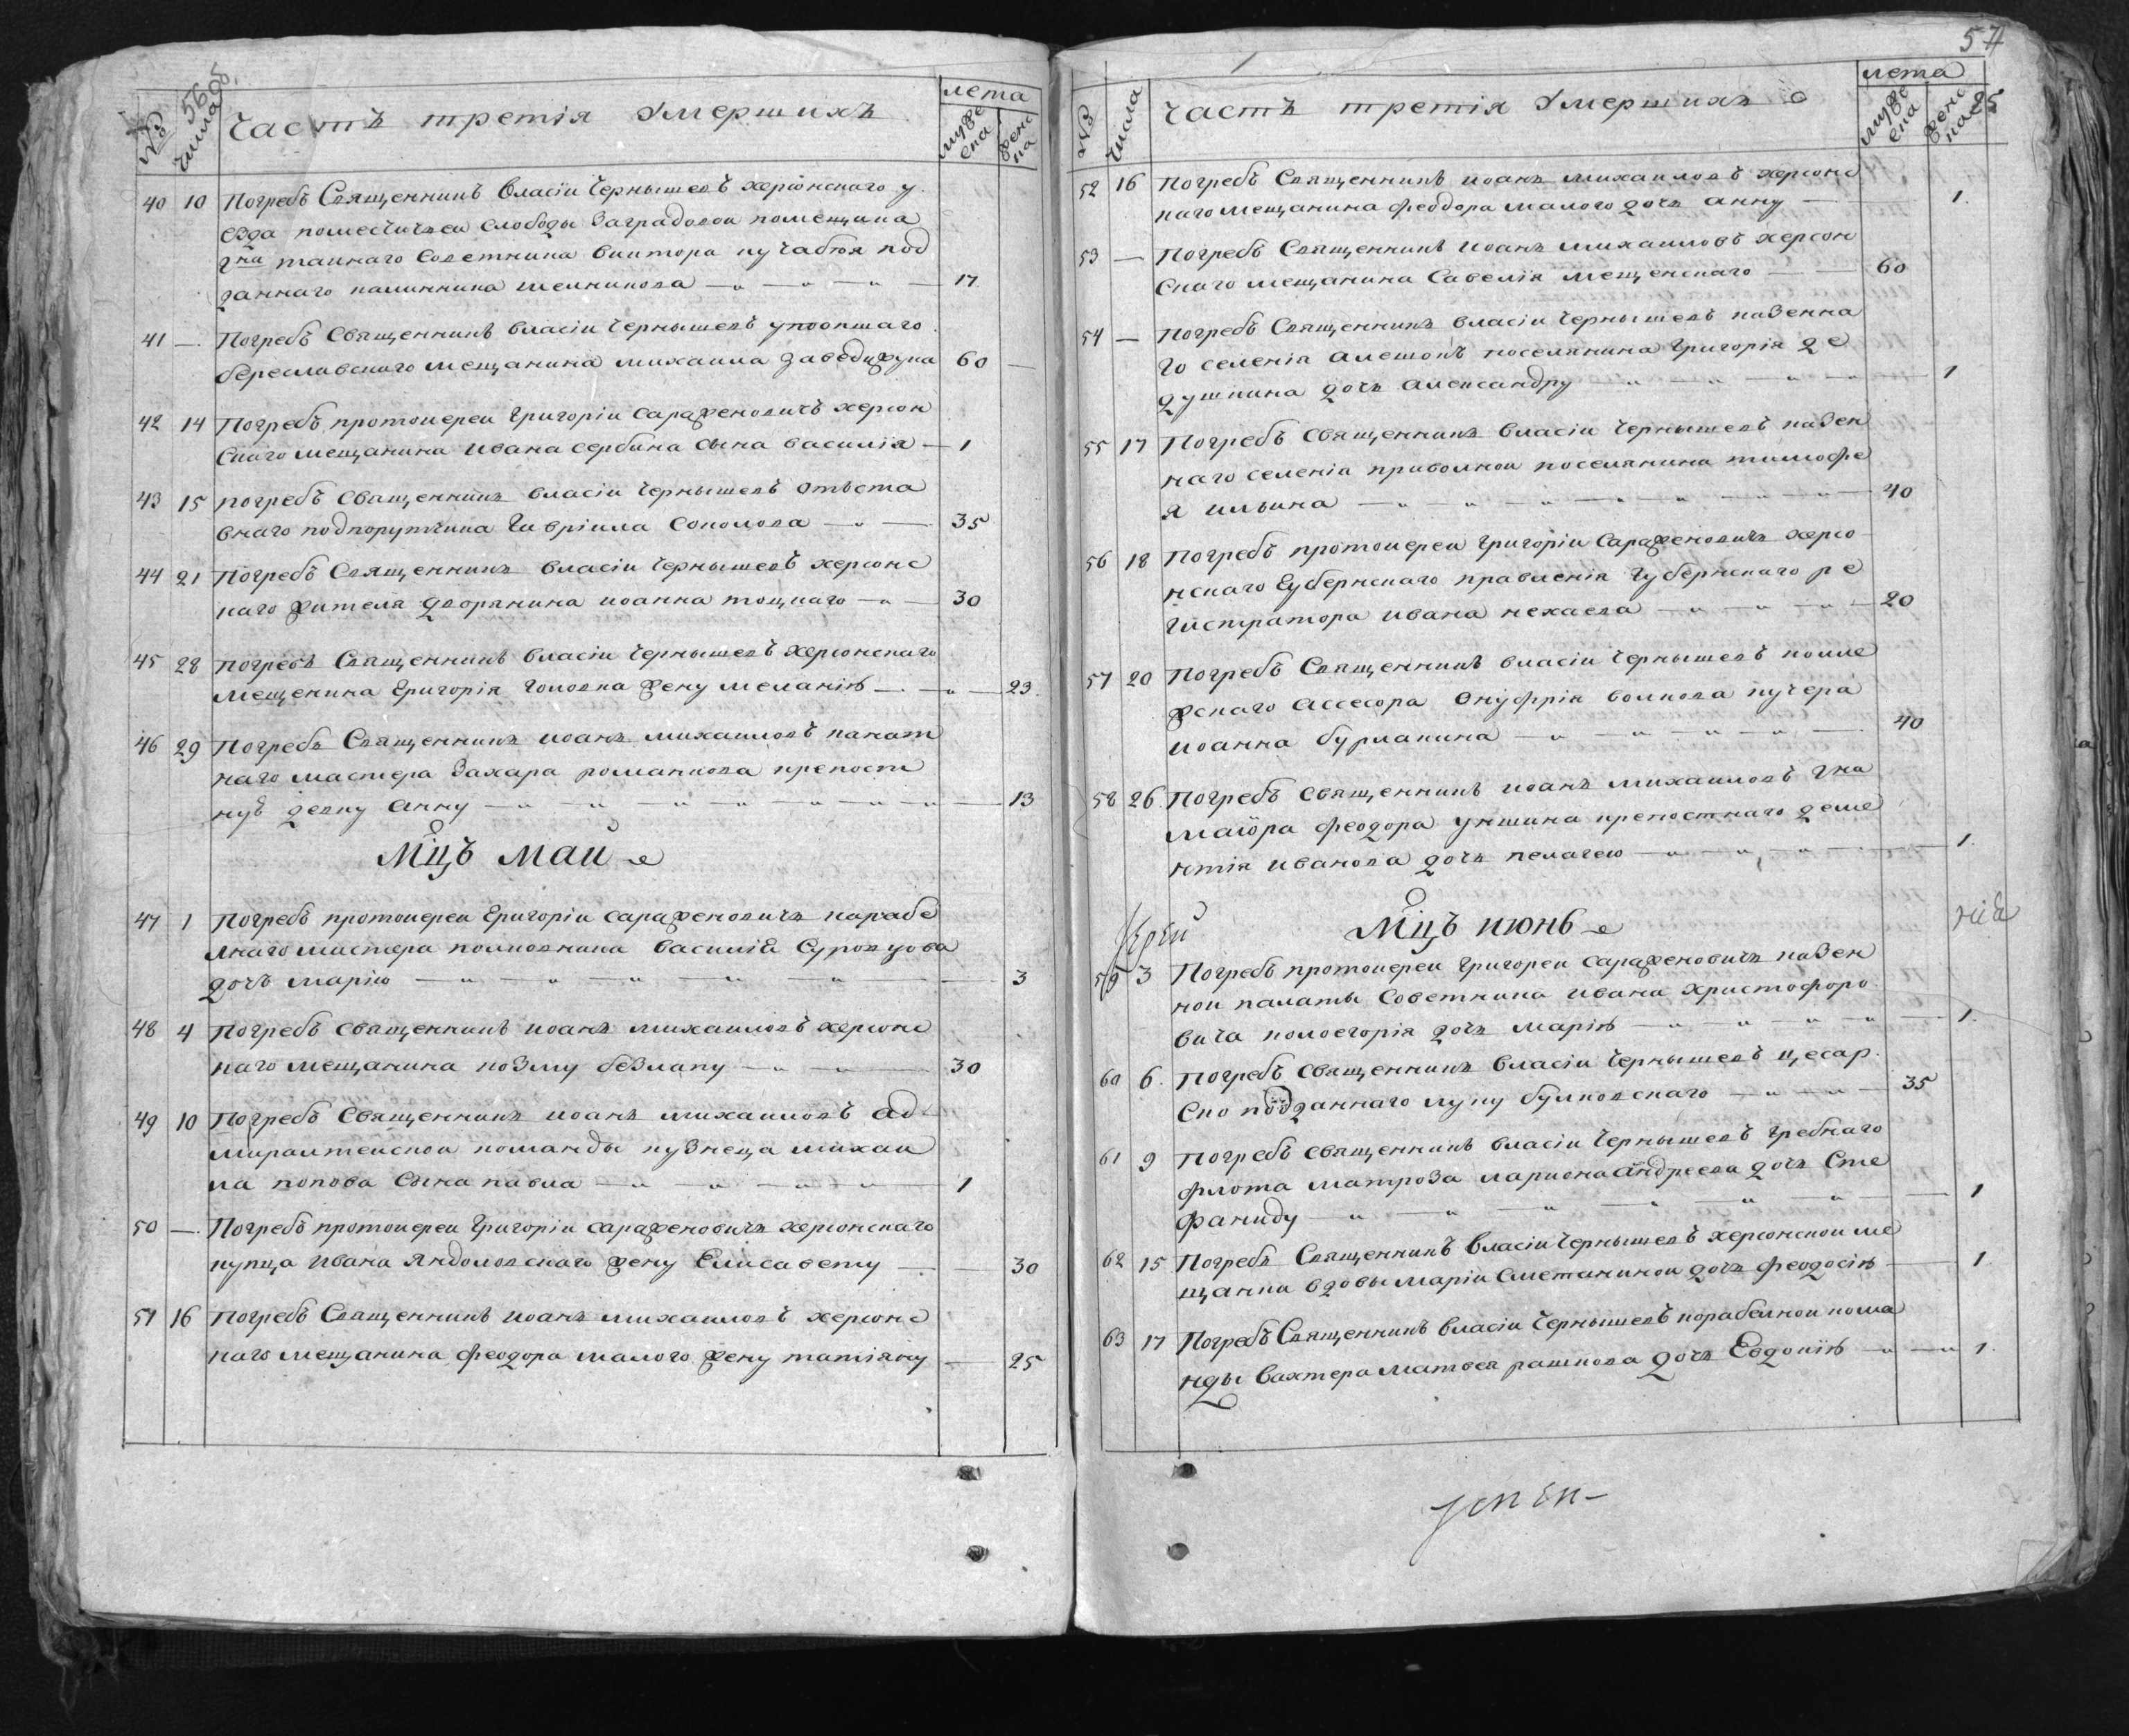 56 об.
№
числа
Часть третія Умершихъ
лета
мужеска
женска
40 10 Погребъ Священникъ Власіи Чернышевъ херсонскаго у
езда поместичьеи слободы Заградовои помещика
гна таинаго Советника Виктора кучабѣя под
даннаго калинника мелникова 17
41 — Погребъ Священникъ Власіи Чернышевъ упокоишаго
бериславскаго мещанина михаила 60
42 14 Погребъ протоиереи Григоріи Сарафеновичъ херсон
скаго мещанина Ивана сербина сына василія 1
43 15 погребъ Священникъ Власіи Чернышевъ отъста
внаго подпорутчика Гавріила Соколова 35
44 21 Погребъ Священникъ Власіи Чернышевъ херсонс
каго жителя дворянина иоанна тоцкаго 30
45 28 погребъ Священникъ Власіи Чернышевъ Херсонскаго
мещенина Григорія головка жену меланію 23.
46 29 Погребъ Священникъ иоанъ михаиловъ канат
наго мастера Захара романкова крепост
нуѣ девку анну 13
Мцъ маи
47 1 Погребъ протоиереи Григоріи сарафеновичъ карабе
лнаго мастера полковника василия Суровцова
дочь марію 3
48 4 Погребъ Священникъ иоанъ михаиловъ херсонс
каго мещанина козму безлапу 30
49 10 Погребъ Священникъ иоанъ михаиловъ ад
миралтеискои команды кузнеца михаи
ла попова Сына павла 1
50 — Погребъ протоиереи Григоріи сарафеновичъ херсонскаго
купца Ивана Яндоловскаго жену Елисавету 30
51 16 Погребъ Священникъ иоанъ михаиловъ херсонс
каго мещанина феодора малого жену татіяну 25
57
№
числа
часть третія Умершихъ
лета
мужеска
женска
52 16 Погребъ Священникъ иоанъ михаиловъ херсонс
каго мещанина феодора малого дочь анну 1.
53 — Погребъ Священникъ иоанъ михаиловъ херсон
скаго мещанина Савелія мещенскаго 60
54 — Погребъ Священникъ Власіи Чернышевъ казенна
го селенія алешокъ поселянина григорія де
душкина дочь александру 1
55 17 Погребъ Священникъ Власіи Чернышевъ казен
наго селенія приволнои поселянина тимофе
я илвина 40
56 18 Погребъ протоиереи григоріи Сарафеновичъ херсо
нскаго Губернскаго правленія губернскаго ре
гистратора ивана нехаева 20
57 20 Погребъ Священникъ власіи Чернышевъ колле
жскаго ассесора Онуфрія волкова кучера
иоанна бурлакина 40
58 26 Погребъ Священникъ иоанъ михаиловъ гна
маиора феодора укшина крепостнаго деме
нтія иванова дочь пелагею 1
Мцъ июнь
59 3 Погребъ протоиереи григореи сарафеновичъ казен
нои палаты Советника ивана христофоро
вича дочь марію 1.
60 6. Погребъ Священникъ Власіи Чернышевъ цесар
ско подданнаго луку булковскаго 35
61 9 Погребъ Священникъ власіи Чернышевъ гребнаго
флота матроза лариона андреева дочь Сте
фаниду 1
62 15 Погребъ Священникъ Власіи Чернышевъ херсонскои ме
щанки вдовы маріи Сметаникои дочь феодосію 1
63 17 Погребъ Священникъ власіи Чернышевъ корабелнои кома
нды Вахтера матвея рашкова дочь Евдокию 1.